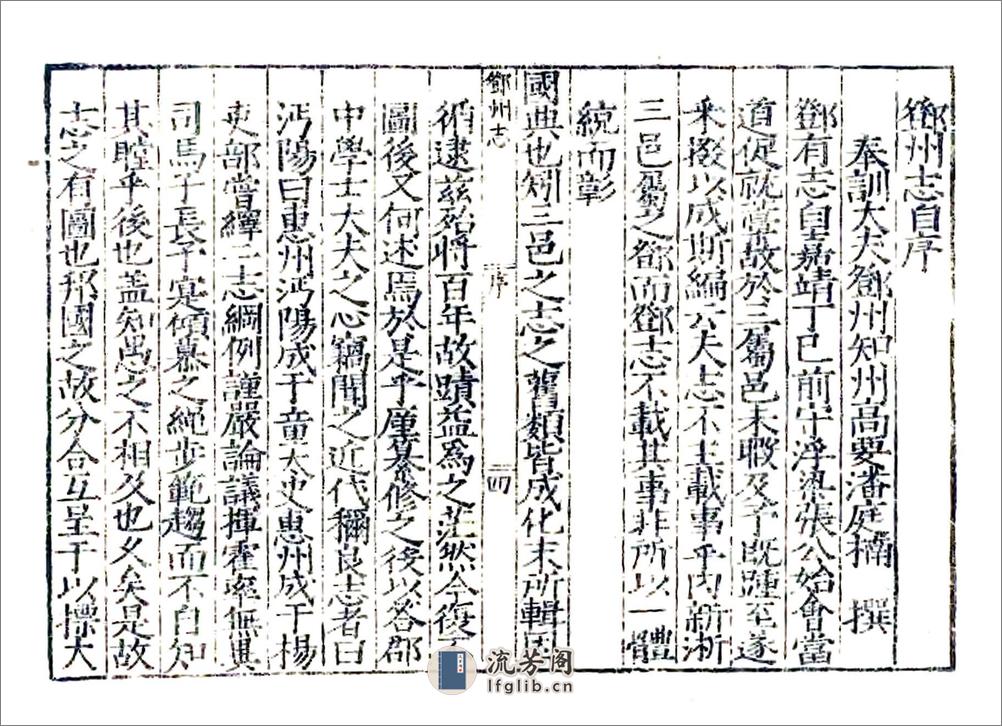 鄧州志自序
奉訓大夫鄧州知州高要潘庭楠　撰
鄧有志自皇嘉靖丁巳前守浮梁張公始會當
道促就棠故於三屬邑未暇及予既踵至遂
釆掇以成斯編云夫志不主載事乎內新淅
三邑屬之鄧而鄧志不載其事非所以一體
統而彰
國典也矧三邑之志之舊類皆成化末所輯
鄧州志
序
四
循逮茲殆將百年故蹟益為之茫然今復
圖後又何述焉於是乎厪纂修之後以咨郡
中學士大夫之心竊聞之近代稱良志者曰
沔陽曰惠州沔陽成于童太史惠州成于楊
吏部嘗繹二志綱例謹嚴論議揮霍率無其
司馬子長予寔傾慕之繩步範趨而不自知
其瞠乎後也蓋知愚之不相久也久矣是故
志之有圖也邦國之故分合互呈于以慓大
流芳阁
lfglib.cn